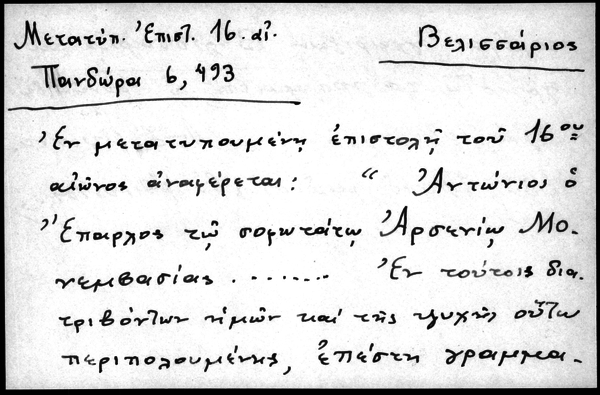 Μετατύπ. Ἐπιστ. 16. αἰ.
Βελισσάριος
Πανδώρα 6, 493
Ἐν μετατυπουμένῃ ἐπιστολῇ τοῦ 16ου
αἰῶνος ἀναφέρεται: “ Ἀντώνιος ὁ
Ἔπαρχος τῷ σοφωτάτῳ Ἀρσενίῳ Μο-
νεμβασίας ........ Ἐν τούτοις δια-
τριβόντων ἡμῶν καὶ τῆς ψυχῆς οὕτω
περιπολουμένης, ἐπέστη γραμμα-